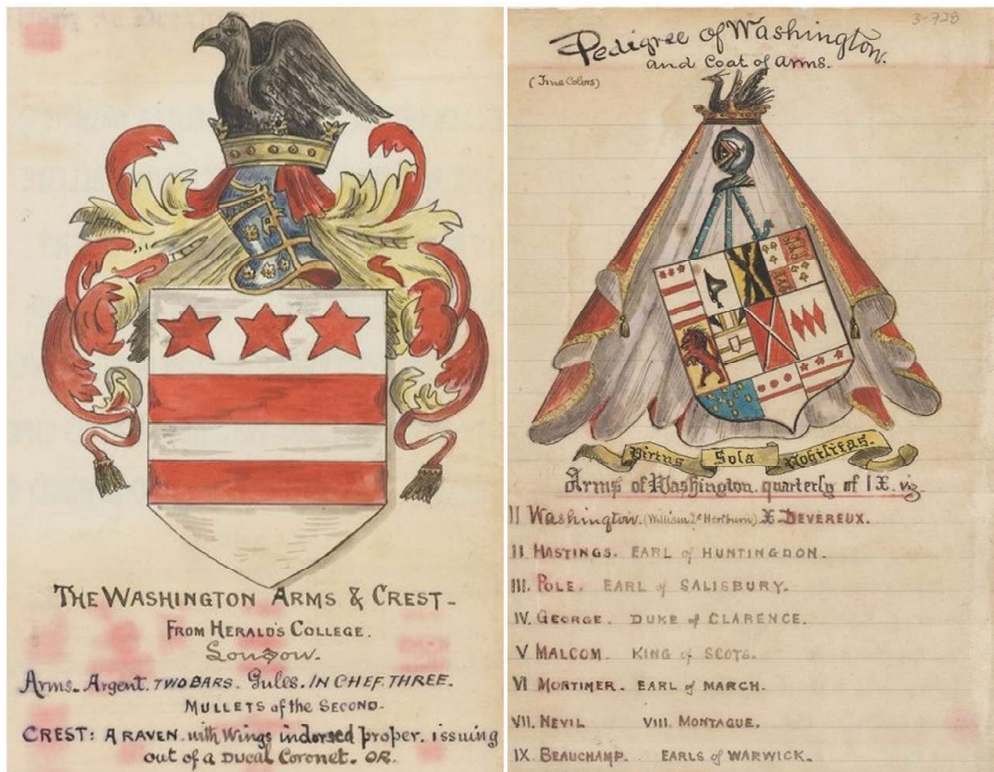 THE WASHINGTON ARMS & CREST -
FROM HERALD'S COLLEGE.
London.
Arms. Argent. TWO BARS. Gules. IN CHEF. THREE.
MULLETS of the SECOND-
CREST: A RAVEN. with Wings indorsed proper. issuing
out of a Ducal Coronet. OR.
3-728
Pedigree of Washington.
and Coat of arms.
(True Colors)
Virtus Sola Nobilitas.
Arms of Washington. quarterly of IX. viz
II Washington. (William de Hertburn) X. DEVEREUX.
II. HASTINGS. EARL of HUNTINGDON.
III. POLE. EARL of SALISBURY.
IV. GEORGE. DUKE of CLARENCE.
V MALCOM. KING of SCOTS.
VI MORTIMER. EARL of MARCH.
VII. NEVIL VIII. MONTAGUE.
IX. BEAUCHAMP. EARLS of WARWICK.